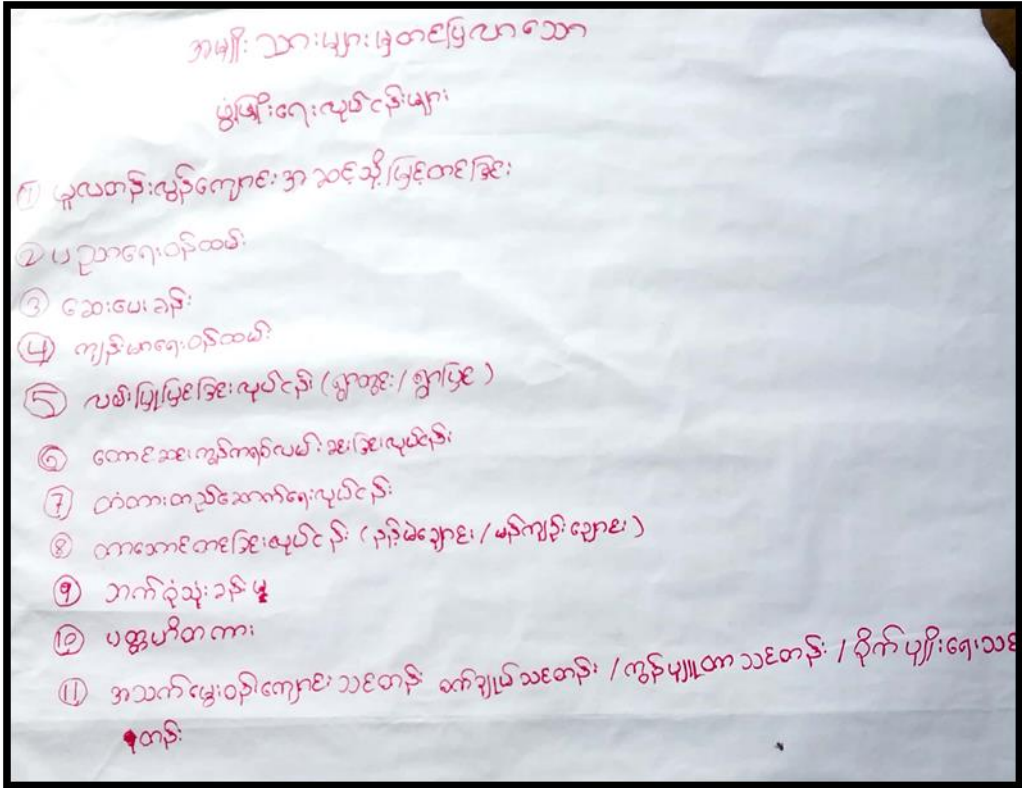 အမျိုးသားများမှတင်ပြလာသော
ဖွံ့ဖြိုးရေးလုပ်ငန်းများ
① မူလတန်းလွန်ကျောင်းအဆင့်သို့မြှင့်တင်ခြင်း
② ပညာရေးဝန်ထမ်း
③ ဆေးပေးခန်း
④ ကျန်းမာရေးဝန်ထမ်း
⑤ လမ်းပြုပြင်ခြင်းလုပ်ငန်း (ရွာတွင်း / ရွာပြင်)
⑥ တောင်ဆင်းကွန်ကရစ်လမ်းခင်းခြင်းလုပ်ငန်း
⑦ တံတားတည်ဆောက်ရေးလုပ်ငန်း
⑧ တာဘောင်တင်ခြင်းလုပ်ငန်း (ချောင်း / မန်ကျည်းချောင်း)
⑨ ဘက်စုံသုံးခန်းမ
⑩ ပတ္တဟိတကား
⑪ အသက်မွေးဝမ်းကျောင်းသင်တန်း စက်ချုပ်သင်တန်း / ကွန်ပျူတာသင်တန်း / စိုက်ပျိုးရေးသင်
တန်း